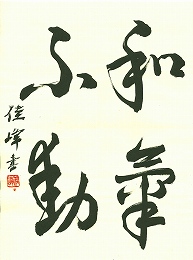 和氣
不動
佳峰書